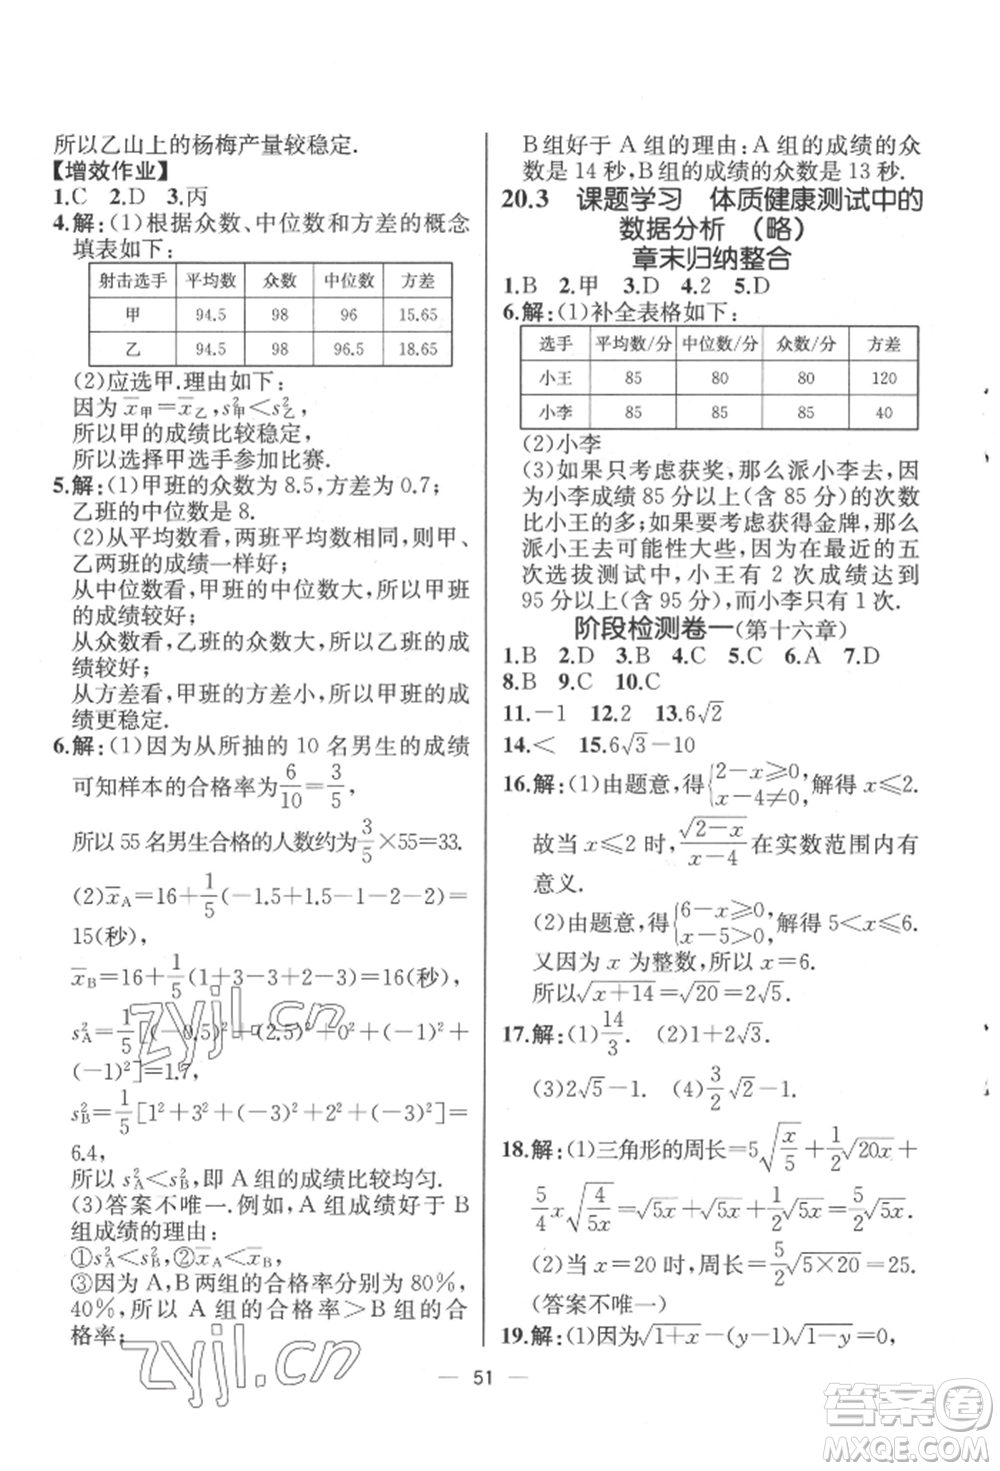 所以乙山上的杨梅产量较稳定.
【增效作业】
1.C 2.D 3.丙
4.解:(1)根据众数、中位数和方差的概念
填表如下:
射击选手 平均数 众数 中位数 方差
甲 94.5 98 96 15.65
乙 94.5 98 96.5 18.65
(2)应选甲.理由如下:
因为x̅甲=x̅乙,s²甲<s²乙,
所以甲的成绩比较稳定,
所以选择甲选手参加比赛.
5.解:(1)甲班的众数为8.5,方差为0.7;
乙班的中位数是8.
(2)从平均数看,两班平均数相同,则甲、
乙两班的成绩一样好;
从中位数看,甲班的中位数大,所以甲班
的成绩较好;
从众数看,乙班的众数大,所以乙班的成
绩较好;
从方差看,甲班的方差小,所以甲班的成
绩更稳定.
6.解:(1)因为从所抽的10名男生的成绩
可知样本的合格率为6/10=3/5,
所以55名男生合格的人数约为3/5×55=33.
(2)x̅A=16+1/5(-1.5+1.5-1-2-2)=
15(秒),
x̅B=16+1/5(1+3-3+2-3)=16(秒),
s²A=1/5[(-0.5)²+(2.5)²+0²+(-1)²+
(-1)²]=1.7,
s²B=1/5[1²+3²+(-3)²+2²+(-3)²]=
6.4,
所以s²A<s²B,即A组的成绩比较均匀.
(3)答案不唯一.例如,A组成绩好于B
组成绩的理由:
①s²A<s²B,②x̅A<x̅B.
③因为A,B两组的合格率分别为80%,
40%,所以A组的合格率>B组的合
格率;
B组好于A组的理由:A组的成绩的众
数是14秒,B组的成绩的众数是13秒.
20.3 课题学习 体质健康测试中的
数据分析 (略)
章末归纳整合
1.B 2.甲 3.D 4.2 5.D
6.解:(1)补全表格如下:
选手 平均数/分 中位数/分 众数/分 方差
小王 85 80 80 120
小李 85 85 85 40
(2)小李
(3)如果只考虑获奖,那么派小李去,因
为小李成绩85分以上(含85分)的次数
比小王的多;如果要考虑获得金牌,那么
派小王去可能性大些,因为在最近的五
次选拔测试中,小王有2次成绩达到
95分以上(含95分),而小李只有1次.
阶段检测卷一(第十六章)
1.B 2.D 3.B 4.C 5.C 6.A 7.D
8.B 9.C 10.C
11.-1 12.2 13.6√2
14.< 15.6√3-10
16.解:(1)由题意,得{2-x≥0, x-4≠0, 解得x≤2.
故当x≤2时,√(2-x)/(x-4)在实数范围内有
意义.
(2)由题意,得{6-x≥0, x-5>0, 解得5<x≤6.
又因为x为整数,所以x=6.
所以√(x+14)=√20=2√5.
17.解:(1)14/3. (2)1+2√3.
(3)2√5-1. (4)3/2√2-1.
18.解:(1)三角形的周长=5√(x/5)+1/2√(20x)+
5/4x√(4/5x)=√5x+√5x+1/2√5x=5/2√5x.
(2)当x=20时,周长=5/2√(5×20)=25.
(答案不唯一)
19.解:(1)因为√(1+x)-(y-1)√(1-y)=0,
51
zyjl.cn
zyjl.cn
答案卷
MXQE.COM